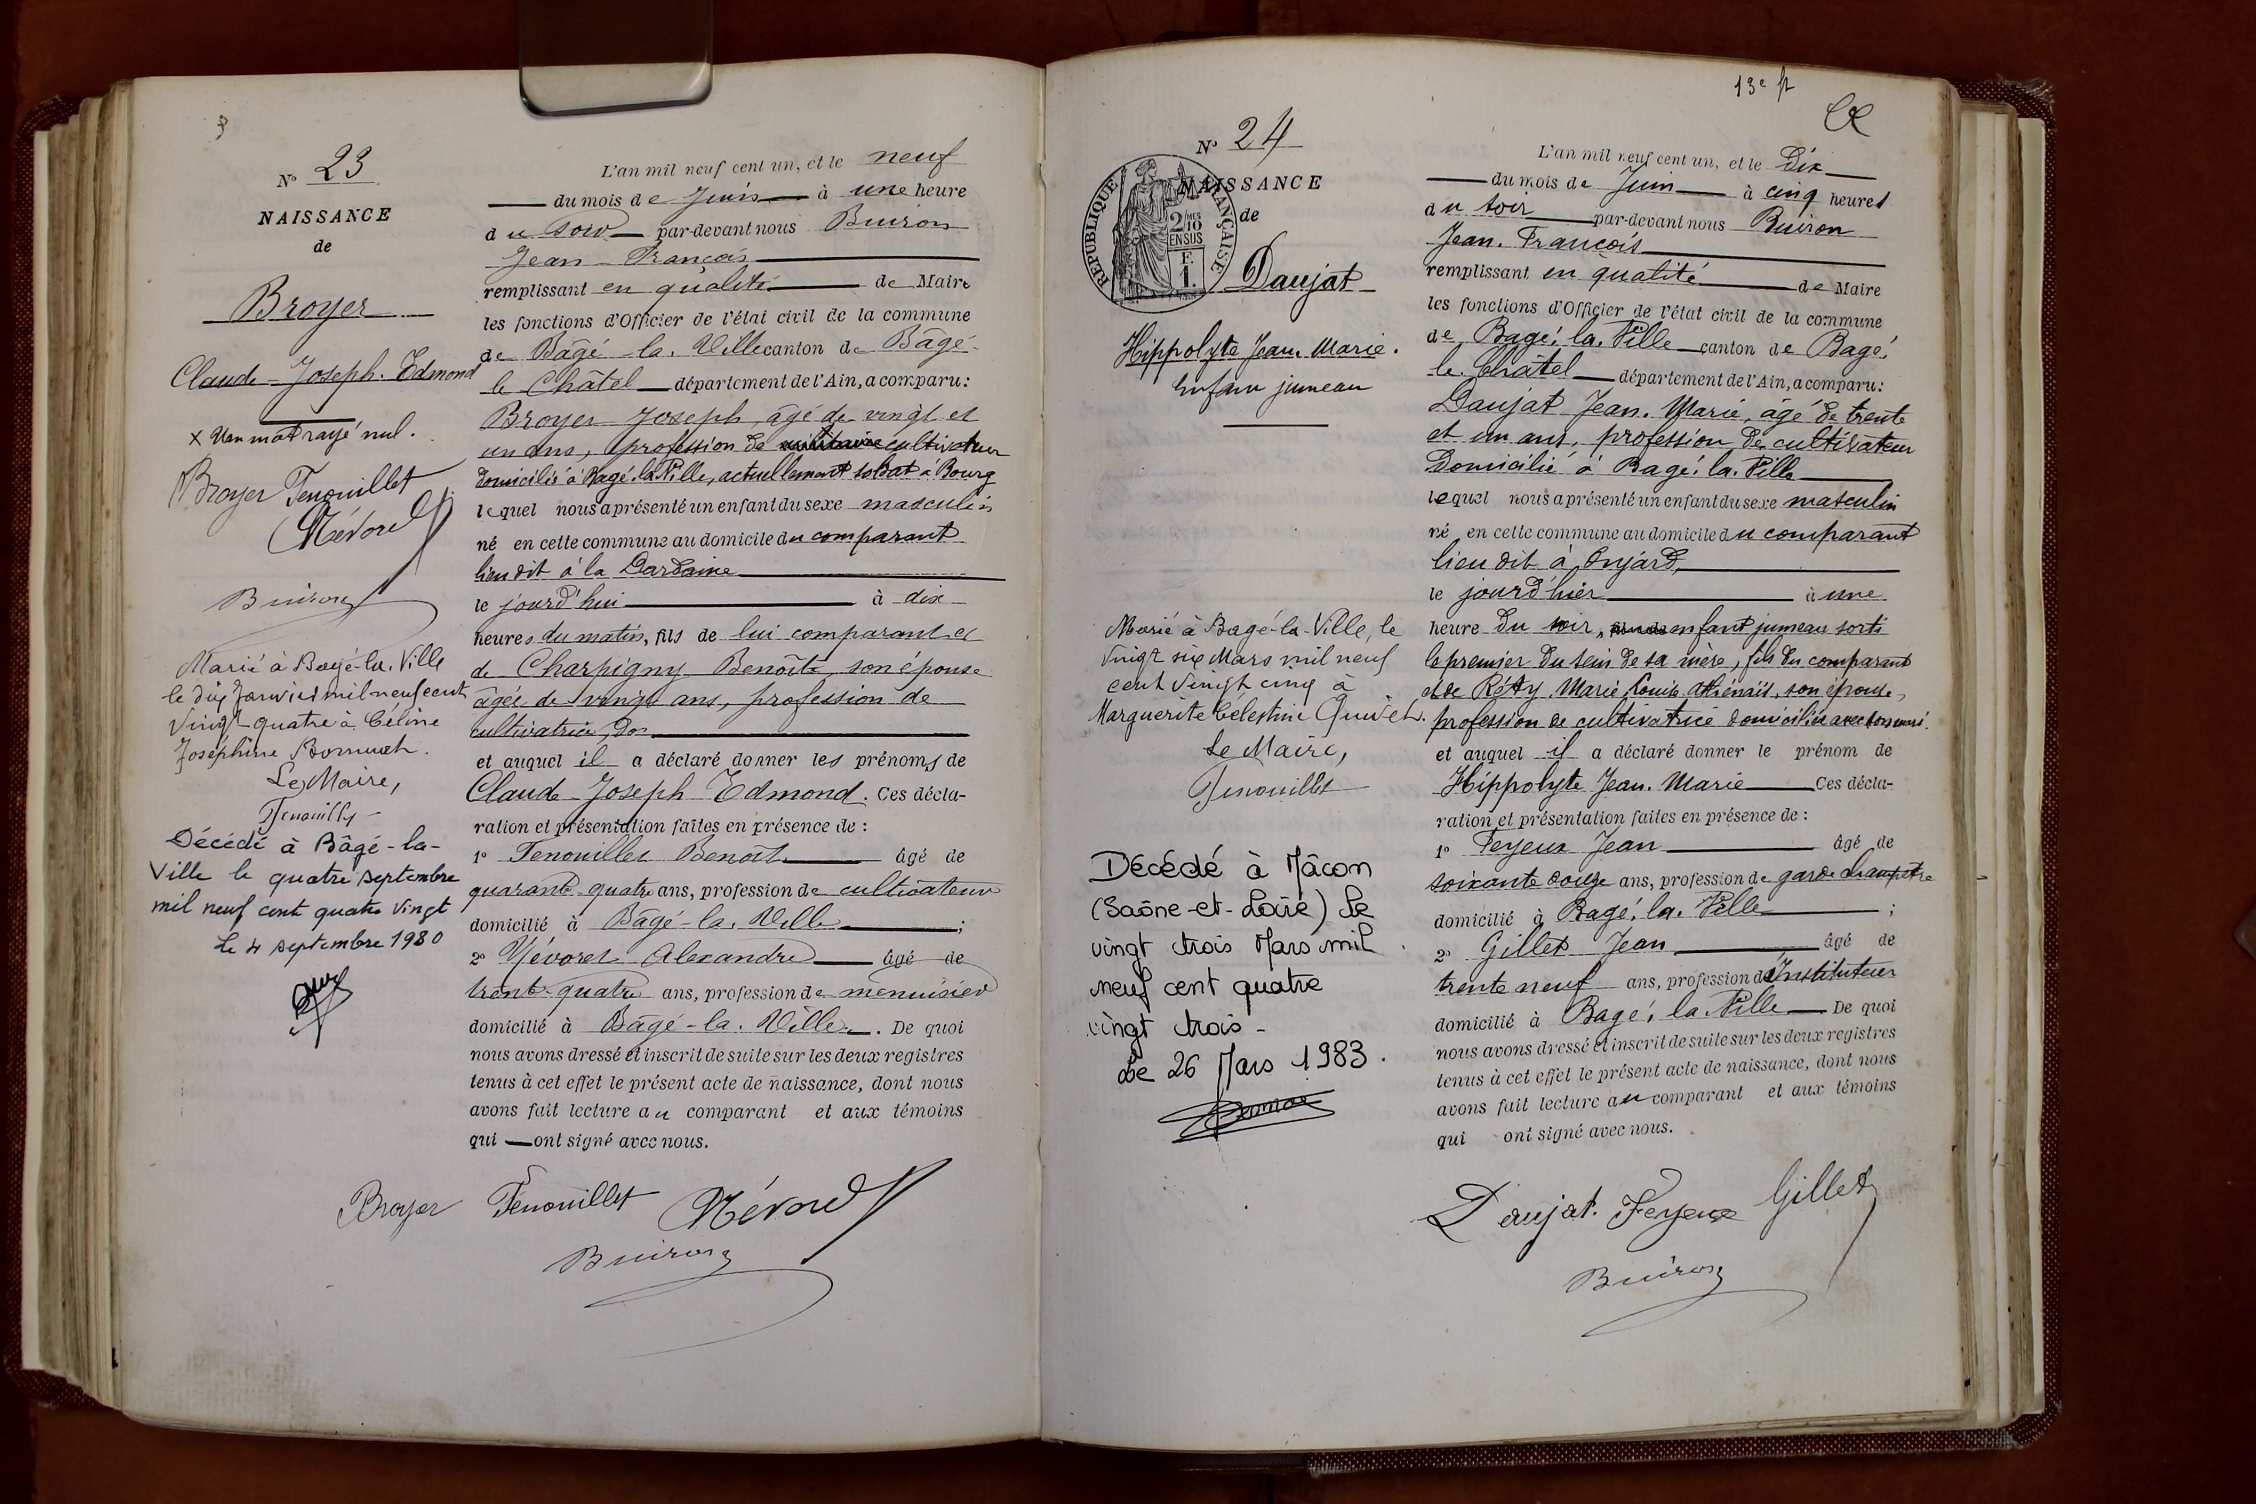 N° 23
NAISSANCE
de
Broyer
Claude-Joseph-Edmond
x Un mot rayé nul.
Broyer Fenouillet
Névoret
Buiron
Marié à Bagé-la-Ville
le dix Janvier mil neuf cent
Vingt quatre à Céline
Joséphine
Le Maire,
Décédé à Bâgé-la-
Ville le quatre septembre
mil neuf cent quatre vingt
Le 4 septembre 1980
L'an mil neuf cent un, et le neuf
du mois de Juin à une heure
du soir par-devant nous Buiron
Jean-François
remplissant en qualité de Maire
les fonctions d'Officier de l'état civil de la commune
de Bâgé-la-Ville canton de Bâgé-
le Châtel département de l'Ain, a comparu:
Broyer Joseph, âgé de vingt et
un ans, profession de militaire cultivateur
domicilié à Bagé-la-Ville, actuellement soldat à Bourg
lequel nous a présenté un enfant du sexe masculin
né en cette commune au domicile du comparant
lieu dit à la Dardaine
le jourd'hui à dix
heures du matin, fils de lui comparant et
de Charpigny Benoîte, son épouse
âgée de vingt ans, profession de
cultivatrice,
et auquel il a déclaré donner les prénoms de
Claude-Joseph-Edmond. Ces décla-
ration et présentation faites en présence de :
1° Fenouillet Benoît âgé de
quarante-quatre ans, profession de cultivateur
domicilié à Bâgé-la-Ville ;
2° Névoret Alexandre âgé de
trente-quatre ans, profession de menuisier
domicilié à Bâgé-la-Ville. De quoi
nous avons dressé et inscrit de suite sur les deux registres
tenus à cet effet le présent acte de naissance, dont nous
avons fait lecture au comparant et aux témoins
qui ont signé avec nous.
Broyer Fenouillet Névoret
Buiron
13e ft
N° 24
RÉPUBLIQUE FRANÇAISE
2/10 EN SUS
F. 1.
NAISSANCE
de
Daujat
Hippolyte Jean-Marie.
Enfant jumeau
Marié à Bagé-la-Ville, le
Vingt six Mars mil neuf
cent vingt cinq à
Marguerite Célestine
Le Maire,
Fenouillet
Décédé à Mâcon
(Saône-et-Loire) le
vingt trois Mars mil
neuf cent quatre
vingt trois -
Le 26 Mars 1983.
L'an mil neuf cent un, et le Dix
du mois de Juin à cinq heures
du soir par-devant nous Buiron
Jean-François
remplissant en qualité de Maire
les fonctions d'Officier de l'état civil de la commune
de Bagé-la-Ville canton de Bagé-
le-Châtel département de l'Ain, a comparu:
Daujat Jean-Marie, âgé de trente
et un ans, profession de cultivateur
Domicilié à Bagé-la-Ville
lequel nous a présenté un enfant du sexe masculin
né en cette commune au domicile du comparant
lieu dit à Onjard,
le jourd'hier à une
heure du soir, enfant jumeau sorti
le premier du sein de sa mère, fils du comparant
et de Réty Marie Louise Athénaïs, son épouse,
profession de cultivatrice domiciliée avec son mari.
et auquel il a déclaré donner le prénom de
Hippolyte Jean-Marie Ces décla-
ration et présentation faites en présence de :
1° Feyeux Jean âgé de
soixante douze ans, profession de garde champêtre
domicilié à Bagé-la-Ville ;
2° Gillet Jean âgé de
trente neuf ans, profession d'Instituteur
domicilié à Bagé-la-Ville De quoi
nous avons dressé et inscrit de suite sur les deux registres
tenus à cet effet le présent acte de naissance, dont nous
avons fait lecture au comparant et aux témoins
qui ont signé avec nous.
Daujat. Feyeux Gillet
Buiron